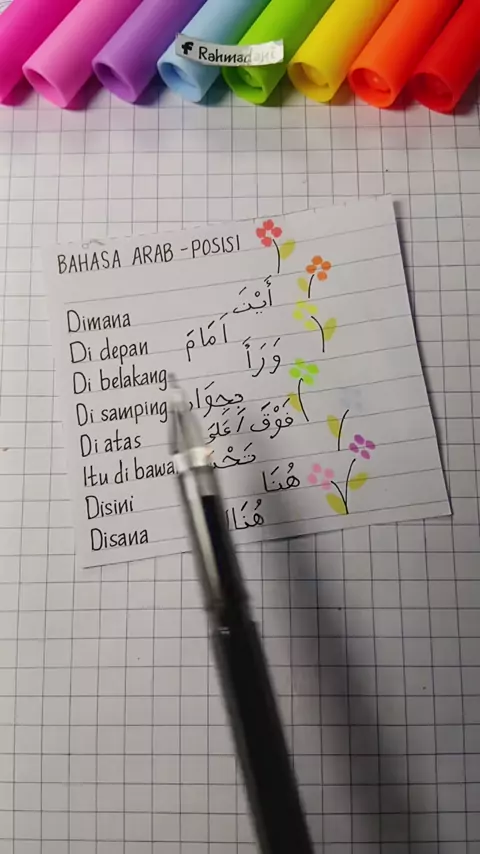 Rahmadani
BAHASA ARAB - POSISI
Dimana أَيْنَ
Di depan اَمَامَ
Di belakang وَرَأَ
Di samping
Di atas فَوْقَ
Itu di
Disini هُنَا
Disana